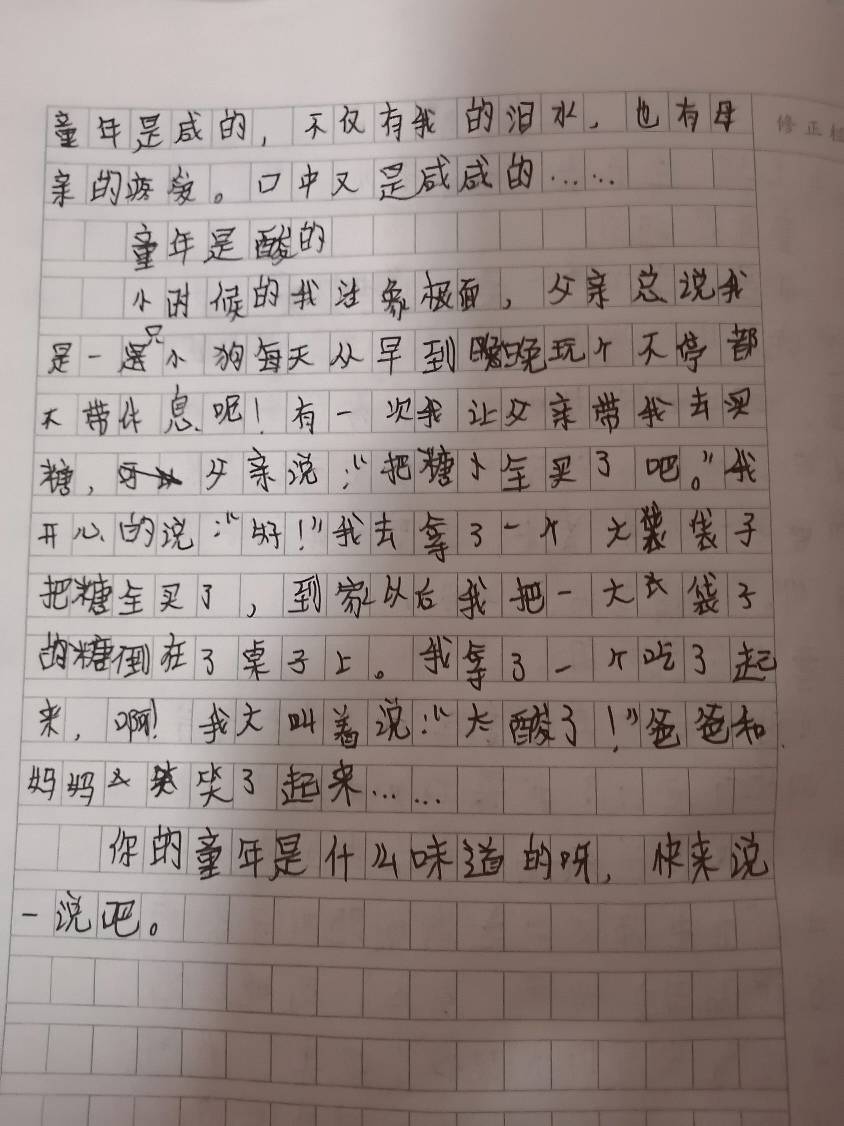 童年是咸的，不仅有我的泪水，也有母
亲的疲惫。口中又是咸咸的……
童年是酸的
小时候的我 极 ，父亲总说我
是一只小狗每天从早到晚玩个不停都
不带休息呢！有一次我让父亲带我去买
糖，父亲说：“把糖 全买了吧。”我
开心的说：“好！”我去拿了一个大袋子
把糖全买了，到家以后我把一大袋子
的糖倒在了桌子上。我拿了一个吃了起
来，啊！我大叫着说：“太酸了！”爸爸和
妈妈 笑了起来……
你的童年是什么味道的呀，快来说
一说吧。
修正